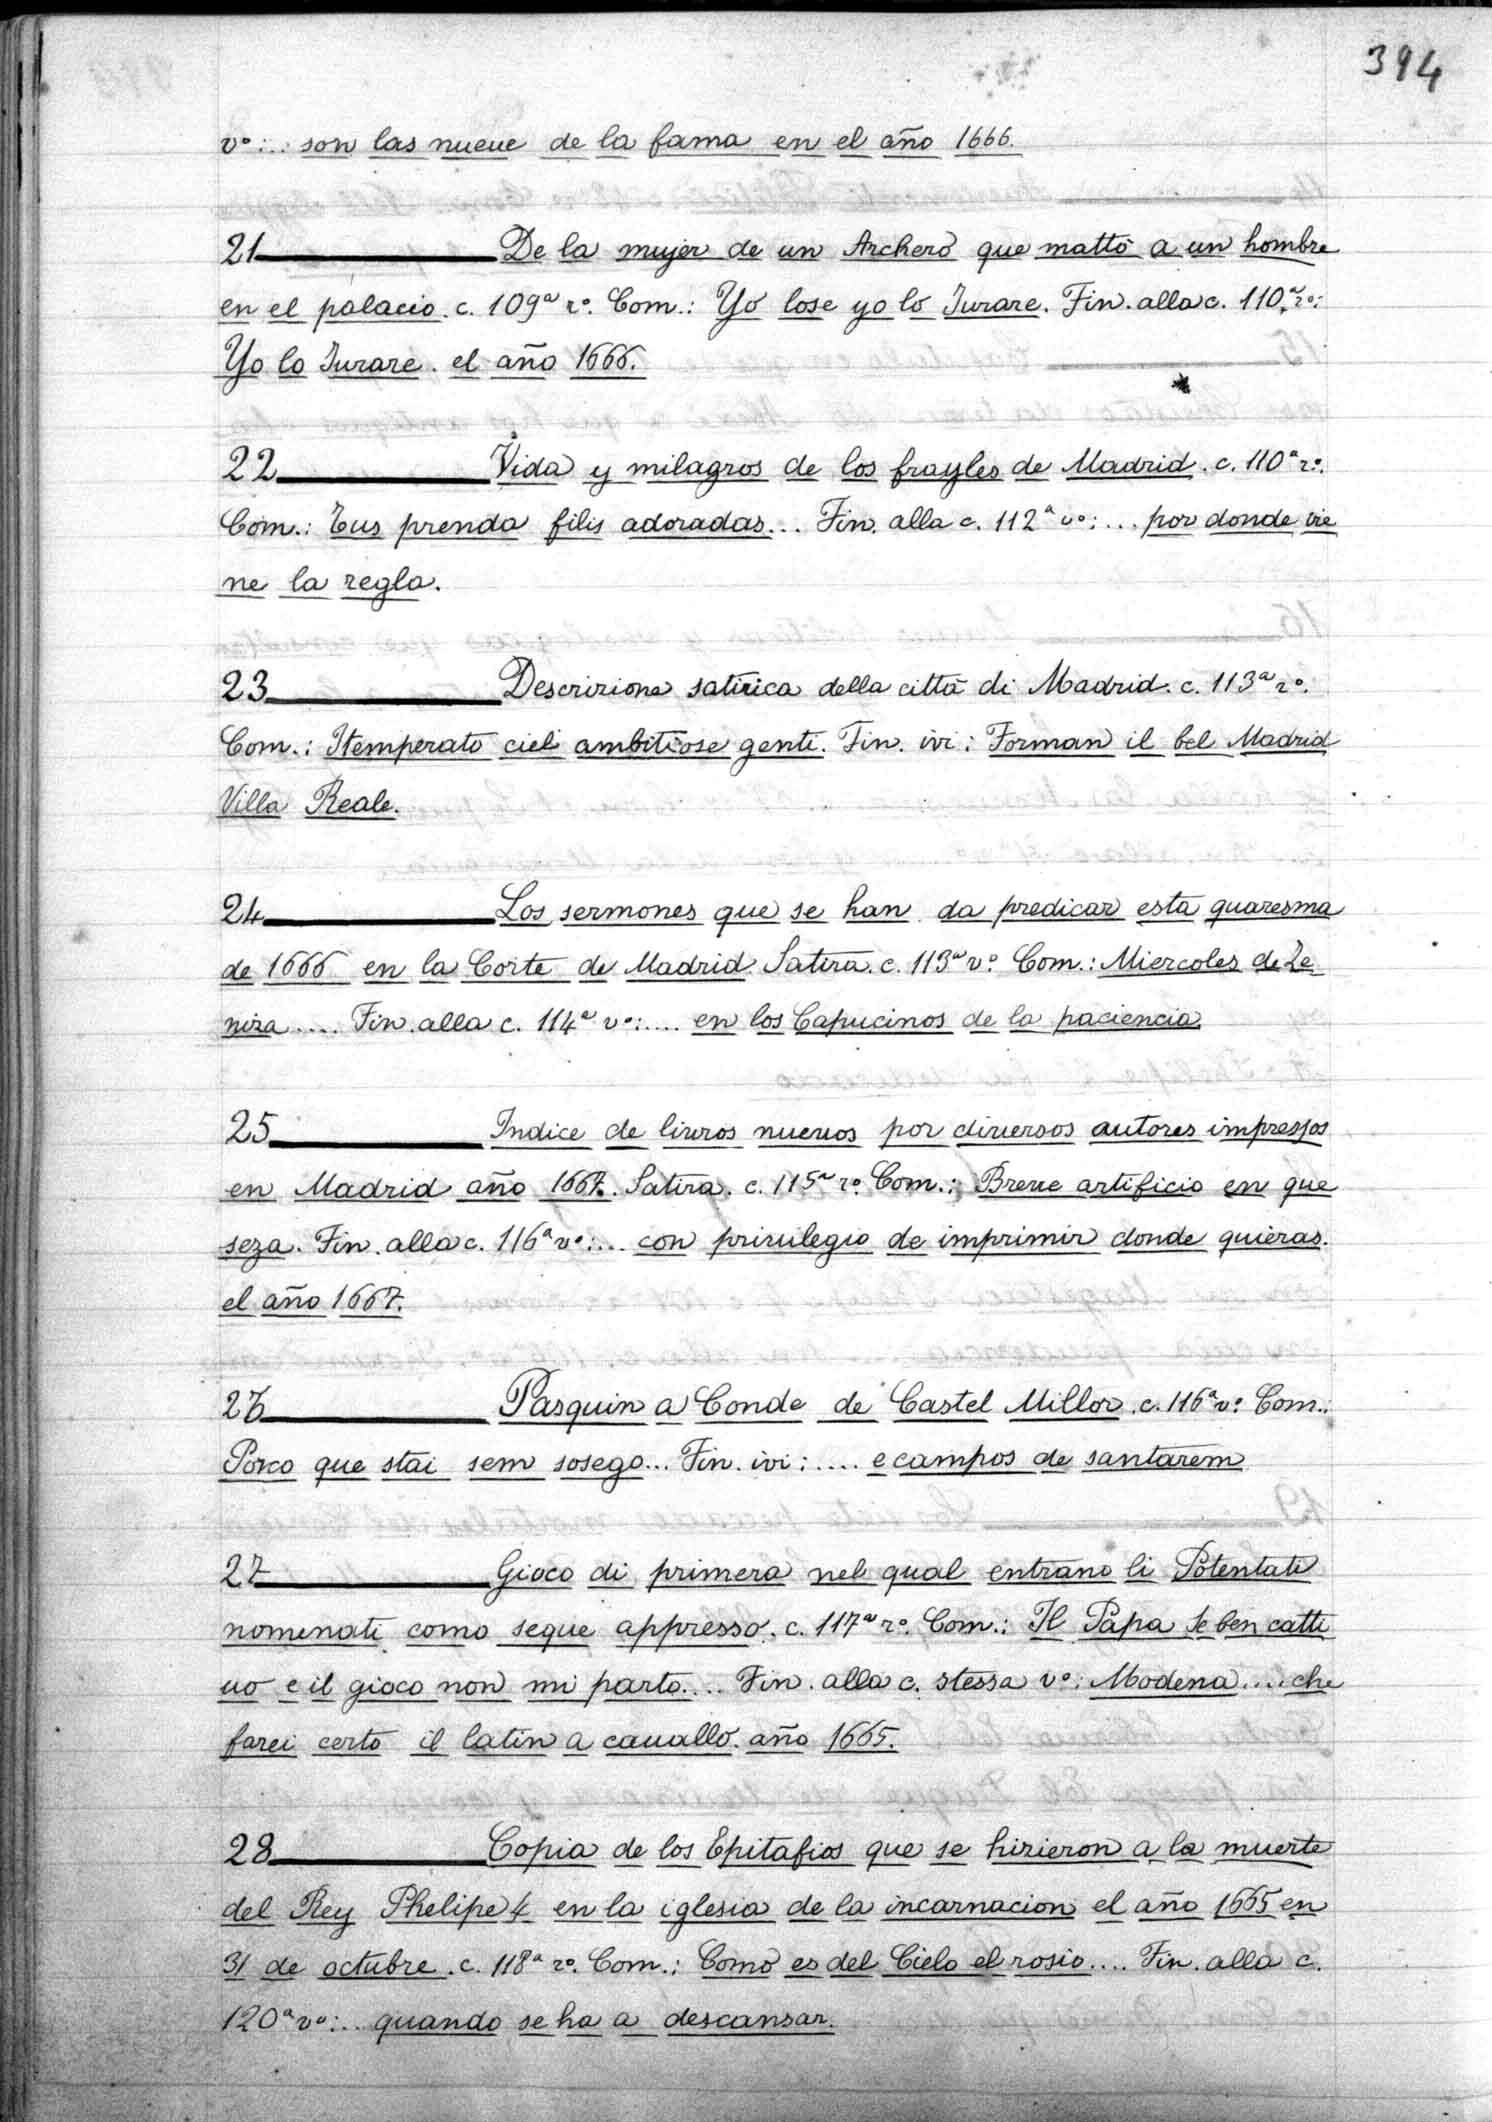 394
vº:... son las nueue de la fama en el año 1666.
21 De la mujer de un Archero que mattò a un hombre
en el palacio. c. 109ª rº. Com.: Yo lose yo lo Jurare. Fin. alla c. 110.ª rº:
Yo lo Jurare. el año 1666.
22 Vida y milagros de los frayles de Madrid. c. 110ª rº.
Com.: Tus prenda filis adoradas... Fin. alla c. 112ª vº:... por donde vie
ne la regla.
23 Descrizione satirica della città di Madrid. c. 113ª rº.
Com.: Itemperato cieli ambitiose genti. Fin. ivi: Forman il bel Madrid
Villa Reale.
24 Los sermones que se han da predicar esta quaresma
de 1666 en la Corte de Madrid. Satira. c. 113ª vº. Com.: Miercoles de Ze
niza..... Fin. alla c. 114ª vº:.... en los Capucinos de la paciencia.
25 Indice de livros nueuos por diuersos autores impressos
en Madrid año 1667. Satira. c. 115ª rº. Com.: Breue artificio en que
seza. Fin. alla c. 116ª vº:... con priuilegio de imprimir donde quieras.
el año 1667.
26 Pasquin a Conde de Castel Millor. c. 116ª vº. Com.:
Porco que stai sem sosego... Fin. ivi:.... e campos de santarem
27 Gioco di primera nel qual entrano li Potentati
nomenati como segue appresso. c. 117ª rº. Com.: Il Papa Se ben catti
uo e il gioco non mi parto.... Fin. alla c. stessa vº: Modena.... che
farei certo il latin a cauallo. año 1665.
28 Copia de los Epitafios que se hizieron a la muerte
del Rey Phelipe 4 en la iglesia de la incarnacion el año 1665 en
31 de octubre. c. 118ª rº. Com.: Como es del Cielo el rosio.... Fin. alla c.
120ª vº:... quando se ha a descansar.